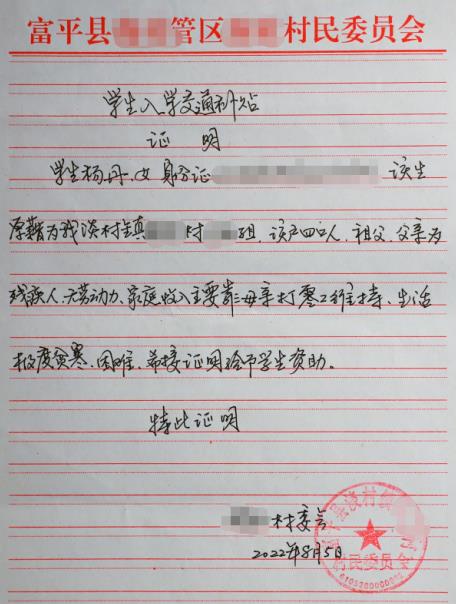 富平县管区村民委员会
学生入学交通补贴
证 明
学生杨丹、女 身份证 该生
原籍为我淡村镇村组、该户四口人、祖父、父亲为
残疾人、无劳动力、家庭收入主要靠母亲打零工维持、生活
极度贫寒、困难、希接证明给予学生资助。
特此证明
村委会
2022年8月5日
村民委员会